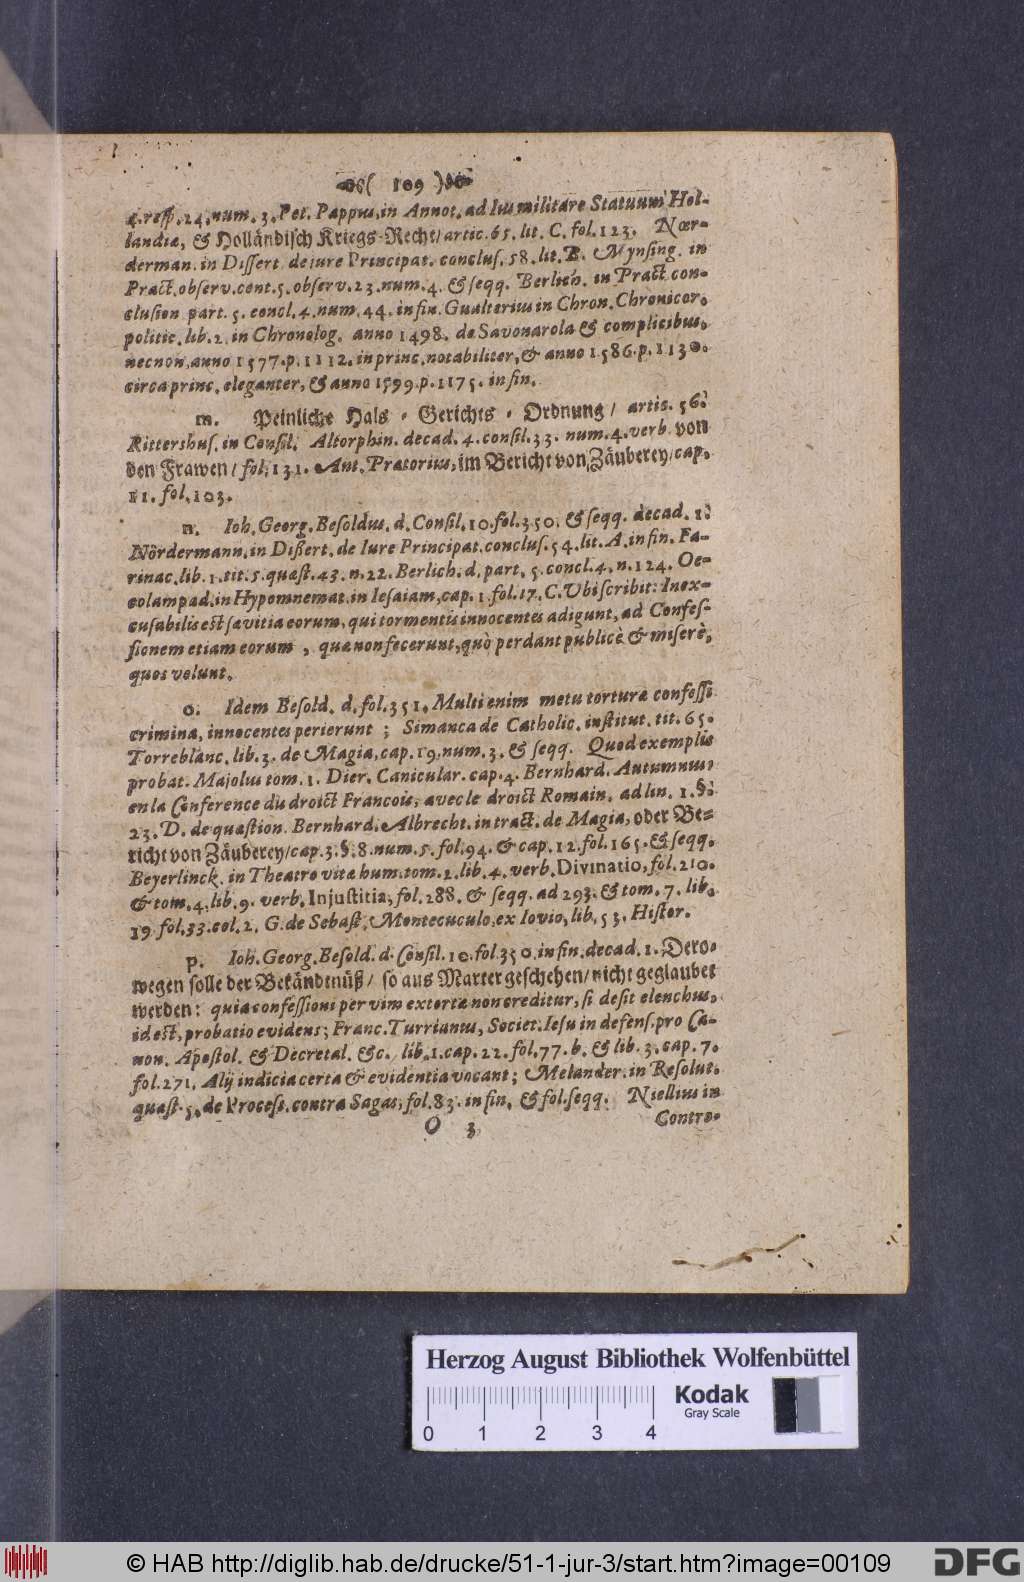 ( 109 )
q. resp. 24. num. 3. Pet. Pappus, in Annot. ad Ius militare Statuum Hol-
landiæ, & Holländisch Kriegs-Recht/ artic. 65. lit. C. fol. 123. Nœr-
derman. in Dissert. de jure Principat. conclus. 58. lit. B. Mynsing. in
Pract. observ. cent. 5. observ. 23. num. 4. & seqq. Berlich. in Pract. con-
clusion part. 5. concl. 4. num. 44. in fin. Gualterius in Chron. Chronicor.
politic. lib. 2. in Chronolog. anno 1498. de Savonarola & complicibus,
necnon, anno 1577. p. 1112. in princ. notabiliter, & anno 1586. p. 1130.
circa princ. eleganter, & anno 1599. p. 1175. in fin.
m. Peinliche Hals - Gerichts - Ordnung/ artic. 56.
Rittershus. in Consil. Altorphin. decad. 4. consil. 33. num. 4. verb. von
den Frawen/ fol. 131. Ant. Prætorius, im Bericht von Zäuberey/ cap.
11. fol. 103.
n. Ioh. Georg. Besoldus. d. Consil. 10. fol. 350. & seqq. decad. 1.
Nördermann. in Dißert. de Iure Principat. conclus. 54. lit. A. in fin. Fa-
rinac. lib. 1. tit. 5. quæst. 43. n. 22. Berlich. d. part. 5. concl. 4. n. 124. Oe-
colampad. in Hypomnemat. in Iesaiam, cap. 1. fol. 17. C. Ubi scribit: Inex-
cusabilis est sævitia eorum, qui tormentis innocentes adigunt, ad Confes-
sionem etiam eorum, quæ non fecerunt, quò perdant publicè & miserè,
quos volunt.
o. Idem Besold. d. fol. 351. Multi enim metu torturæ confessi
crimina, innocentes perierunt ; Simanca de Catholic. institut. tit. 65.
Torreblanc. lib. 3. de Magia, cap. 19. num. 3. & seqq. Quod exemplis
probat. Majolus tom. 1. Dier. Canicular. cap. 4. Bernhard. Autumnus,
en la Conference du droict Francois, avec le droict Romain. ad lin. 1. §.
23. D. de quæstion. Bernhard. Albrecht. in tract. de Magia, oder Be-
richt von Zäuberey/ cap. 3. §. 8. num. 5. fol. 94. & cap. 12. fol. 165. & seqq.
Beyerlinck. in Theatro vitæ hum. tom. 2. lib. 4. verb. Divinatio, fol. 210.
& tom. 4. lib. 9. verb. Injustitia, fol. 288. & seqq. ad 293. & tom. 7. lib.
19. fol. 33. col. 2. G. de Sebast. Montecuculo, ex Iovio, lib. 53. Histor.
p. Ioh. Georg. Besold. d. Consil. 10. fol. 350. in fin. decad. 1. Dero-
wegen solle der Bekändtnüß/ so aus Marter geschehen/ nicht geglaubet
werden: quia confessioni per vim extortæ non creditur, si desit elenchus,
id est, probatio evidens; Franc. Turrianus, Societ. Iesu in defens. pro Ca-
non. Apostol. & Decretal. &c. lib. 1. cap. 22. fol. 77. b. & lib. 3. cap. 7.
fol. 271. Alij indicia certa & evidentia vocant; Melander. in Resolut.
quæst. 5. de Process. contra Sagas, fol. 83. in fin. & fol. seqq. Niellius in
O 3 Contro-
Herzog August Bibliothek Wolfenbüttel
0 1 2 3 4
Kodak
Gray Scale
© HAB http://diglib.hab.de/drucke/51-1-jur-3/start.htm?image=00109
DFG